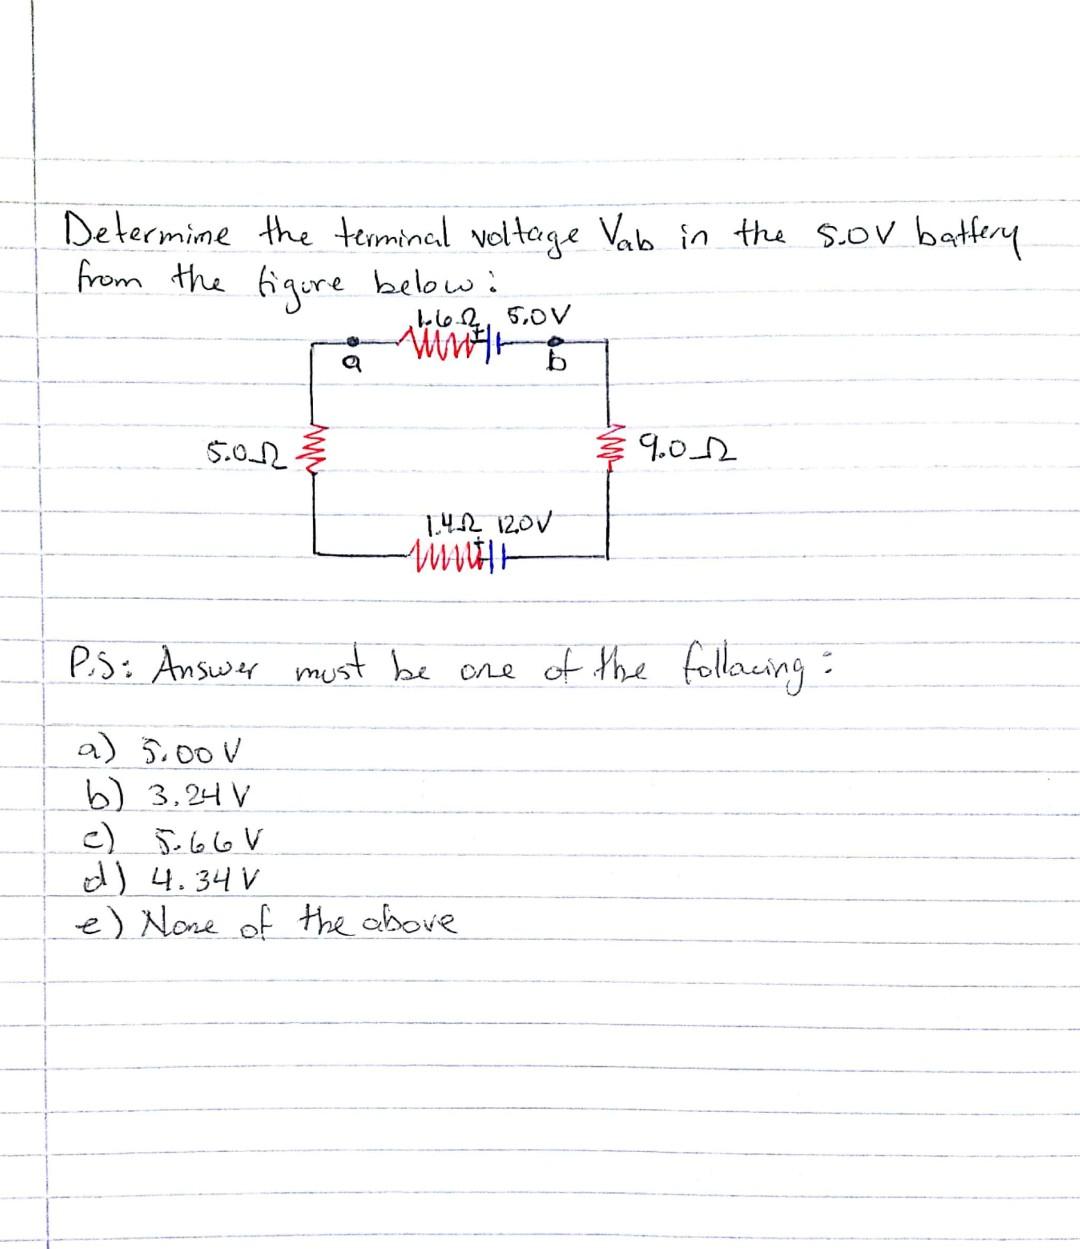 Determine the terminal voltage Vab in the 5.0V battery
from the figure below:
1.6Ω 5.0V
+
a b
5.0Ω 9.0Ω
1.4Ω 12.0V
+
P.S: Answer must be one of the following:
a) 5.00 V
b) 3.24 V
c) 5.66 V
d) 4.34 V
e) None of the above